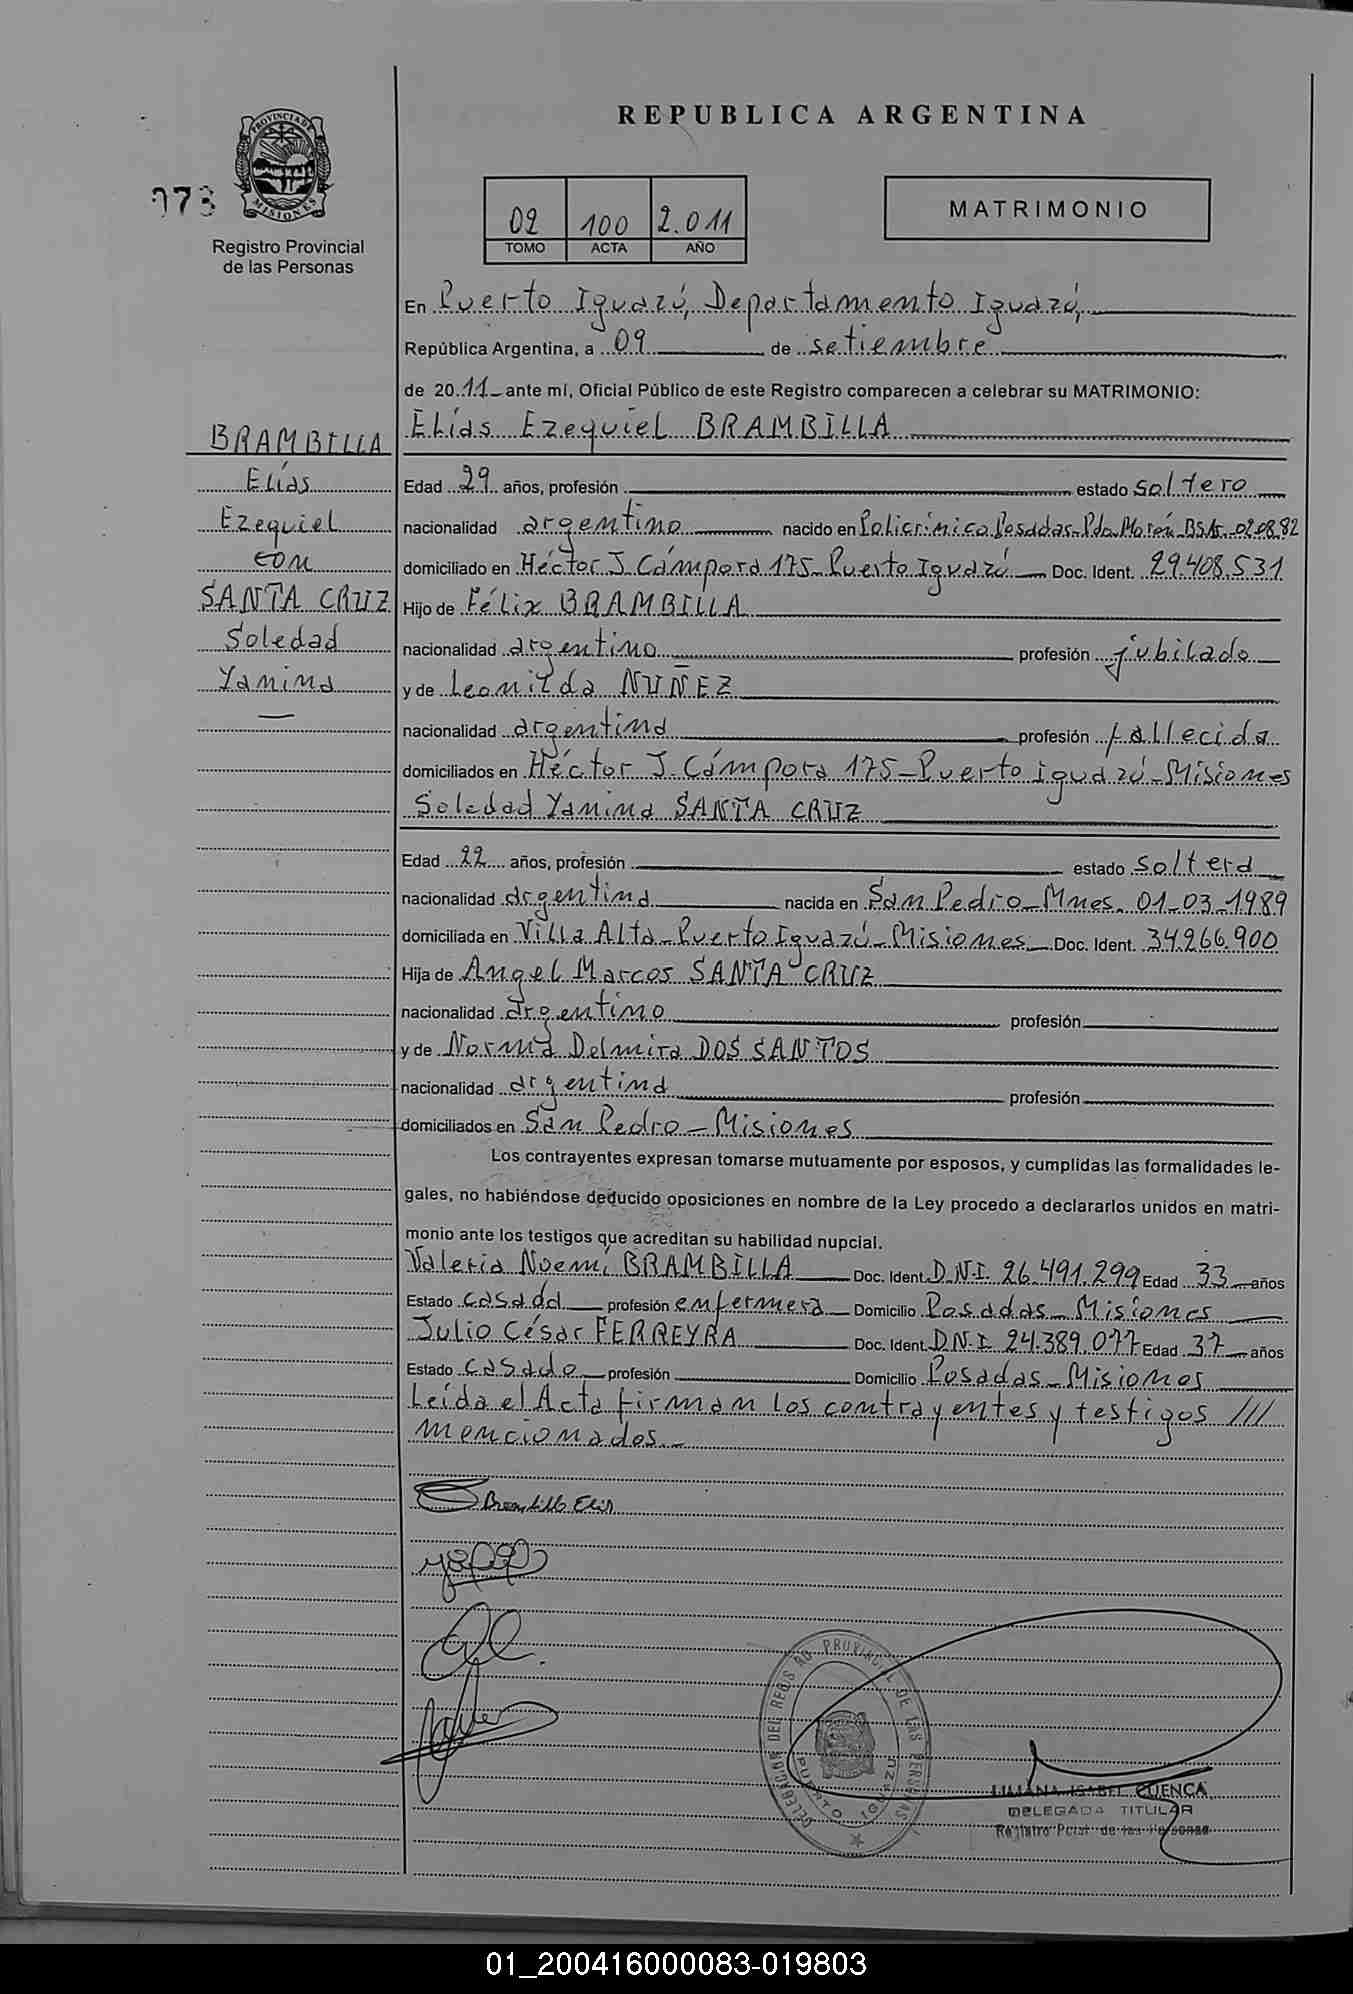 REPUBLICA ARGENTINA
PROVINCIA DE
MISIONES
073
Registro Provincial
de las Personas
02 100 2.011
TOMO ACTA AÑO
MATRIMONIO
En Puerto Iguazú, Departamento Iguazú,
República Argentina, a 09 de setiembre
de 2011 ante mí, Oficial Público de este Registro comparecen a celebrar su MATRIMONIO:
Elías Ezequiel BRAMBILLA
BRAMBILLA
Elías
Ezequiel
con
SANTA CRUZ
Soledad
Yanina
Edad 29 años, profesión estado soltero
nacionalidad argentino nacido en Policrínica Posadas-Pdo. Morón-BsAs-02.08.82
domiciliado en Héctor J. Cámpora 175-Puerto Iguazú Doc. Ident. 29.408.531
Hijo de Félix BRAMBILLA
nacionalidad argentino profesión jubilado
y de Leonilda NUÑEZ
nacionalidad argentina profesión fallecida
domiciliados en Héctor J. Cámpora 175-Puerto Iguazú-Misiones
Soledad Yanina SANTA CRUZ
Edad 22 años, profesión estado soltera
nacionalidad argentina nacida en San Pedro-Mnes. 01-03-1989
domiciliada en Villa Alta-Puerto Iguazú-Misiones Doc. Ident. 34.266.900
Hija de Angel Marcos SANTA CRUZ
nacionalidad argentino profesión
y de Norma Delmira DOS SANTOS
nacionalidad argentina profesión
domiciliados en San Pedro-Misiones
Los contrayentes expresan tomarse mutuamente por esposos, y cumplidas las formalidades le-
gales, no habiéndose deducido oposiciones en nombre de la Ley procedo a declararlos unidos en matri-
monio ante los testigos que acreditan su habilidad nupcial.
Valeria Noemí BRAMBILLA Doc. Ident. D.N.I. 26.491.299 Edad 33 años
Estado casada profesión enfermera Domicilio Posadas-Misiones
Julio César FERREYRA Doc. Ident. D.N.I. 24.389.077 Edad 37 años
Estado casado profesión Domicilio Posadas-Misiones
Leída el Acta firman los contrayentes y testigos ///
mencionados.-
Brambilla Elias
DELEGACION DEL REGISTRO PROVINCIAL DE LAS PERSONAS
PUERTO IGUAZU
LILIANA ISABEL CUENCA
DELEGADA TITULAR
Registro Pcial. de las Personas
01_200416000083-019803